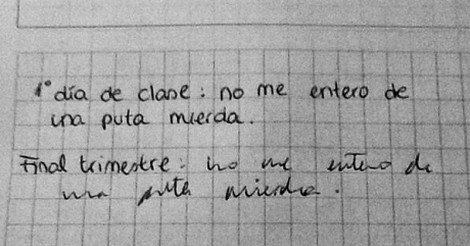 1° día de clase: no me entero de
una puta mierda.
Final trimestre: no me entero de
una puta mierda.